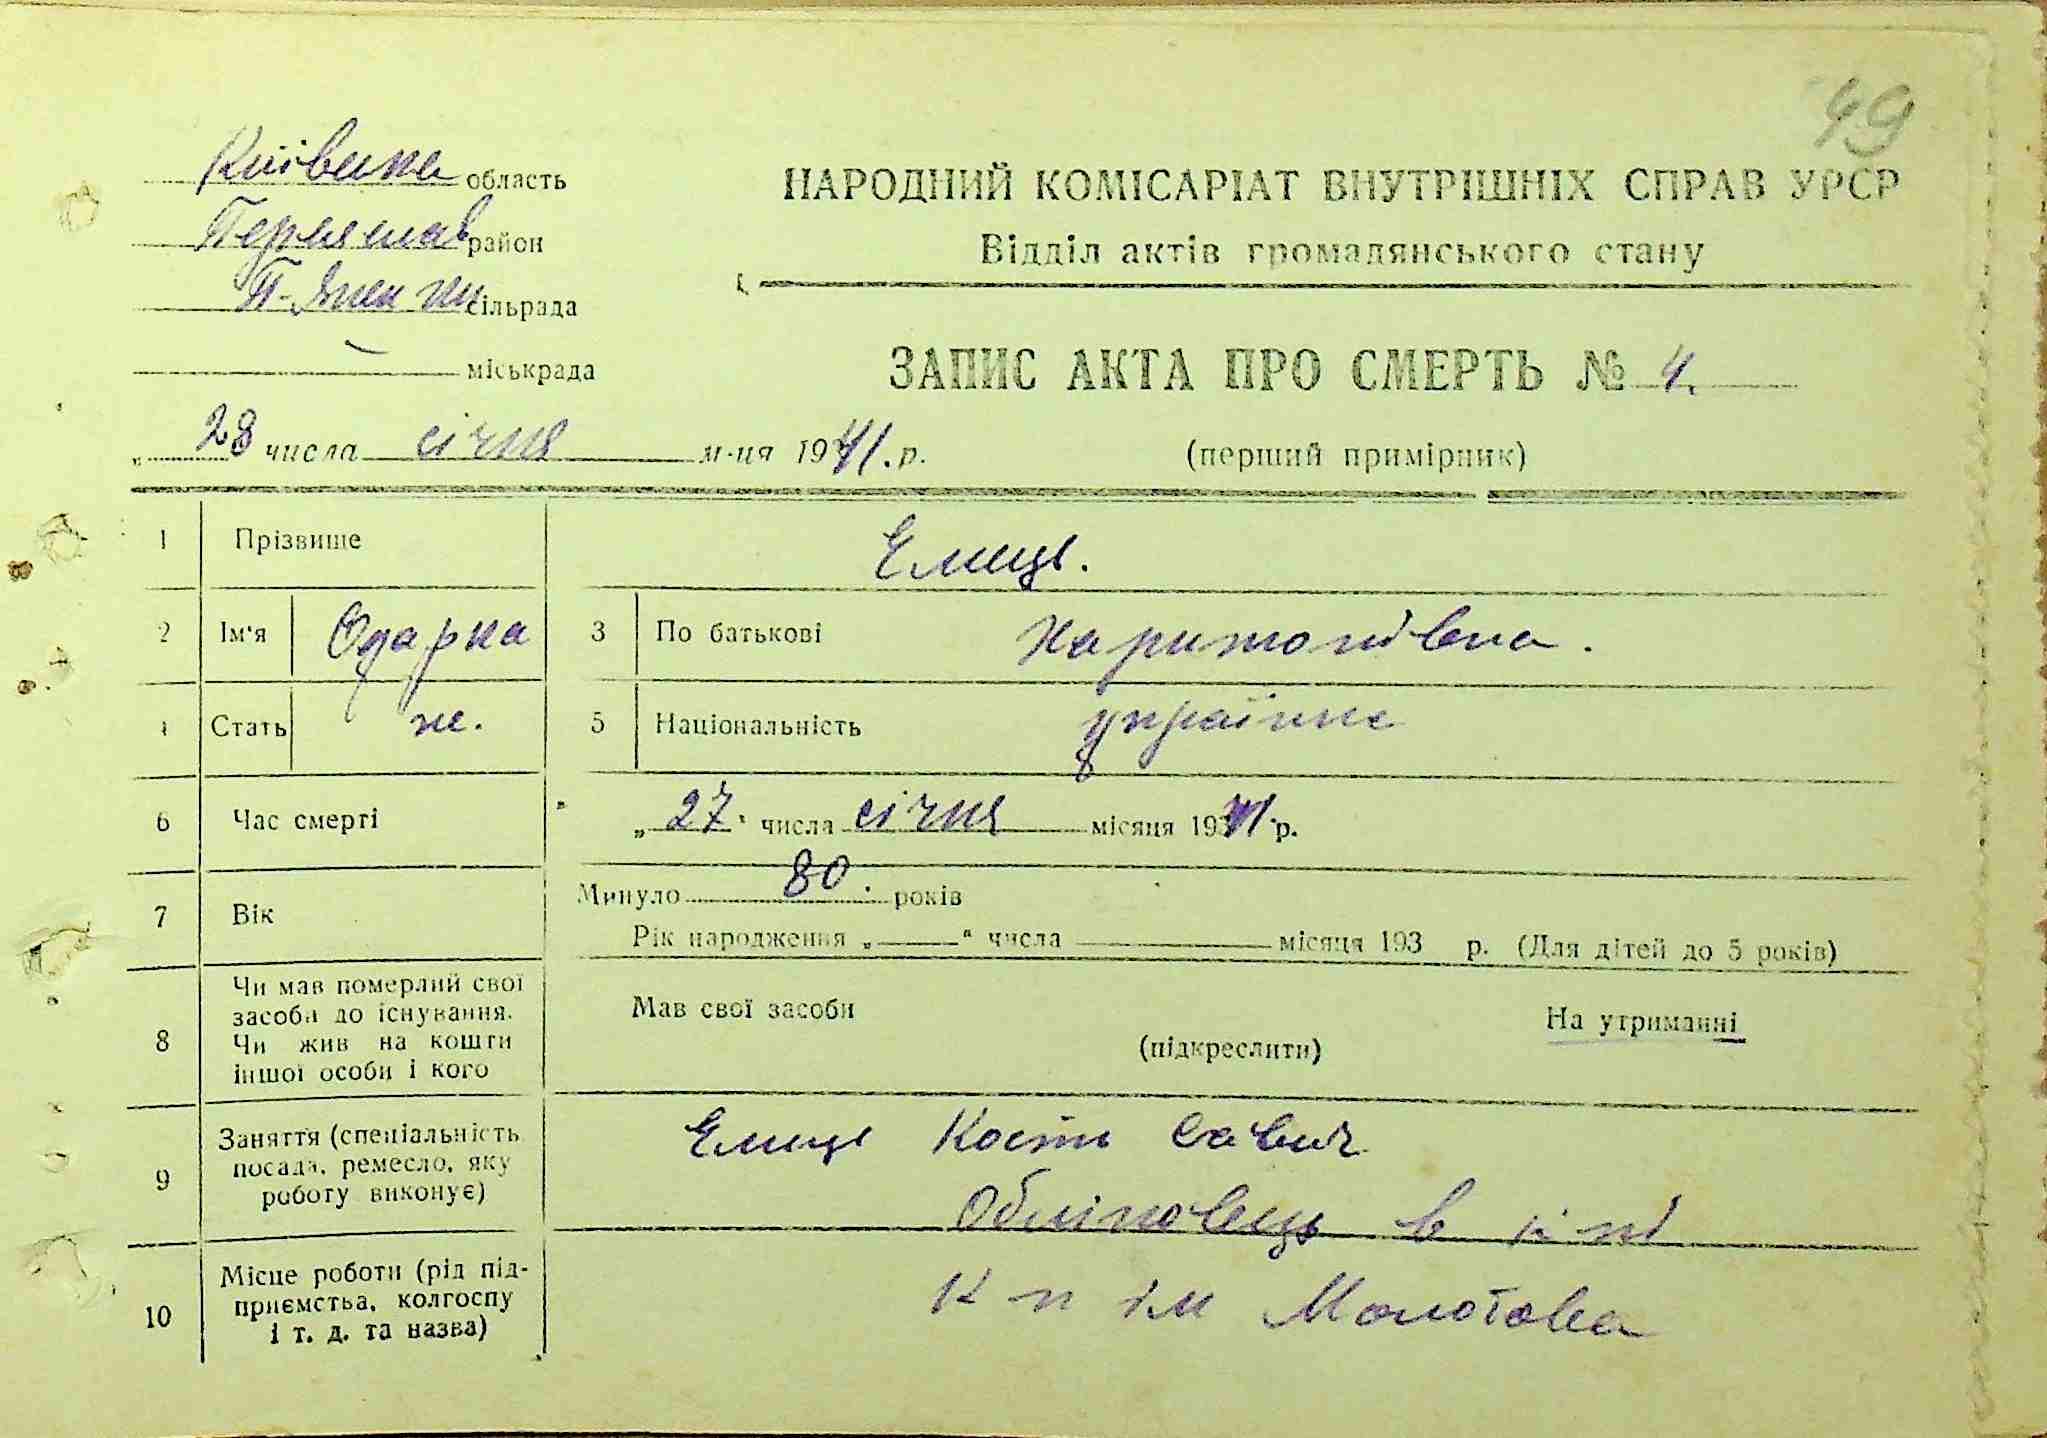 49
Київська область
НАРОДНИЙ КОМІСАРІАТ ВНУТРІШНІХ СПРАВ УРСР
Переяслав район
Відділ актів громадянського стану
сільрада
міськрада
ЗАПИС АКТА ПРО СМЕРТЬ № 4.
„28 числа січня м-ця 1941. р.
(перший примірник)
1 Прізвище Емець.
2 Ім'я Одарка 3 По батькові Харитонівна.
4 Стать ж. 5 Національність українка
6 Час смерті „27" числа січня місяця 1941 р.
7 Вік Минуло 80. років
Рік народження „ " числа місяця 193 р. (Для дітей до 5 років)
8 Чи мав померлий свої
засоби до існування.
Чи жив на кошти
іншої особи і кого
Мав свої засоби
(підкреслити)
На утриманні
9 Заняття (спеціальність
посада, ремесло, яку
роботу виконує)
Емець Кость Савич
Обліковець в
10 Місце роботи (рід під-
приємства, колгоспу
і т. д. та назва)
ім Молотова